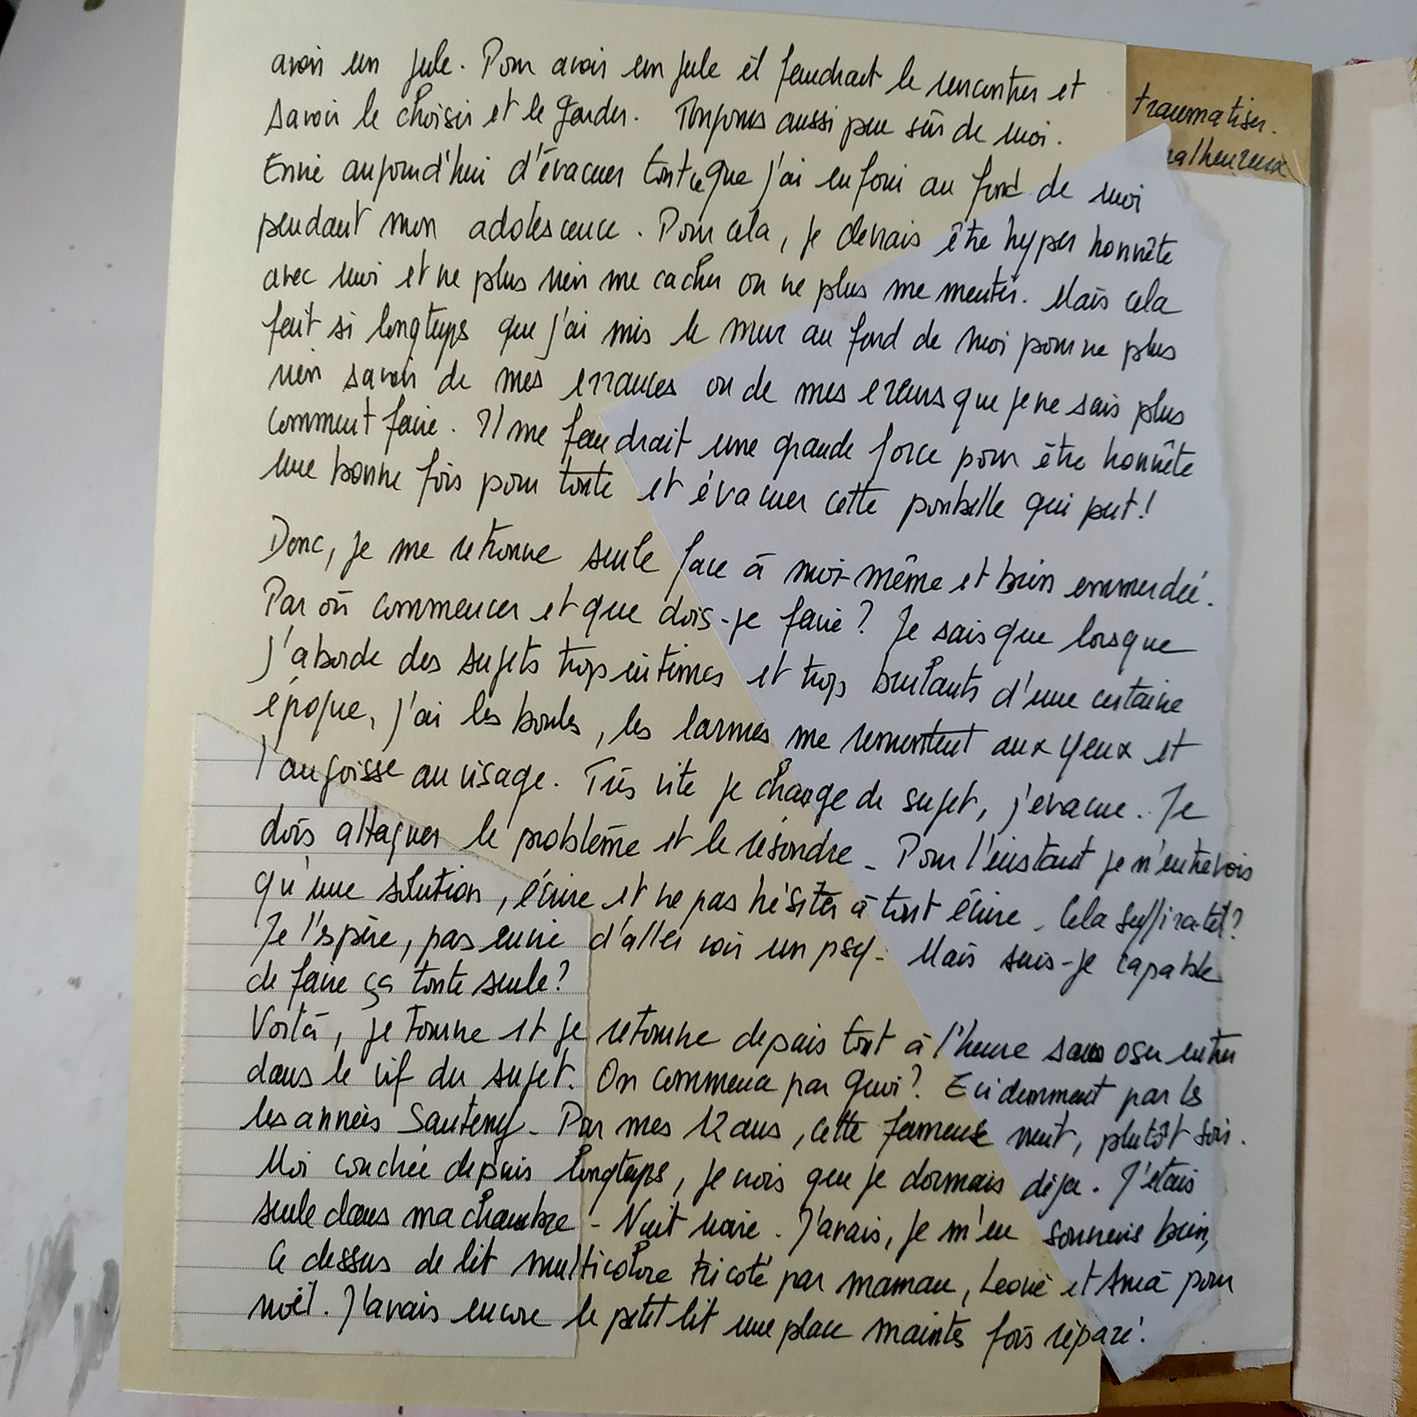 avoir un jule. Pour avoir un jule il faudrait le rencontrer et
savoir le choisir et le garder. Toujours aussi peu sûr de moi.
Envie aujourd'hui d'évacuer tout ce que j'ai enfoui au fond de moi
pendant mon adolescence. Pour cela, je devrais être hyper honnête
avec moi et ne plus rien me cacher ou ne plus me mentir. Mais cela
fait si longtemps que j'ai mis le mur au fond de moi pour ne plus
rien savoir de mes errances ou de mes ereurs que je ne sais plus
comment faire. Il me faudrait une grande force pour être honnête
une bonne fois pour toute et évacuer cette poubelle qui put!
Donc, je me retrouve seule face à moi-même et bien emmerdée.
Par où commencer et que dois-je faire? Je sais que lorsque
j'aborde des sujets trop intimes et trop brulants d'une certaine
époque, j'ai les boules, les larmes me remontent aux yeux et
l'angoisse au visage. Très vite je change de sujet, j'évacue. Je
dois attaquer le problème et le résoudre - Pour l'instant je n'entrevois
qu'une solution, écrire et ne pas hésiter à tout écrire - Cela suffira-t-il?
Je l'espère, pas envie d'aller voir un psy - Mais suis-je capable
de faire ça toute seule?
Voilà, je tourne et je retourne depuis tout à l'heure sans oser entrer
dans le vif du sujet. On commence par quoi? Evidemment par les
les années Sauteny - Par mes 12 ans, cette fameuse nuit, plutôt soir.
Moi couchée depuis longtemps, je crois que je dormais déjà. J'étais
seule dans ma chambre - Nuit noire. J'avais, je m'en souviens bien,
ce dessus de lit multicolore tricoté par maman, Leonie et Ama pour
noël. J'avais encore le petit lit une place maintes fois réparé.
traumatiser.
malheureux